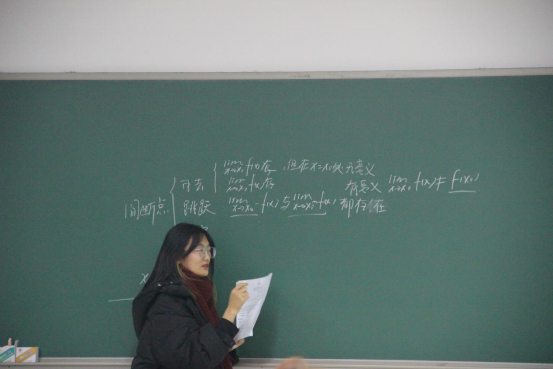 lim x→x₀ f(x)存,但在x=x₀处 无意义
可去 lim x→x₀ f(x)存 有意义 lim x→x₀ f(x)≠ f(x₀)
间断点 跳跃 lim x→x₀⁻ f(x)与 lim x→x₀⁺ f(x) 都存在
x